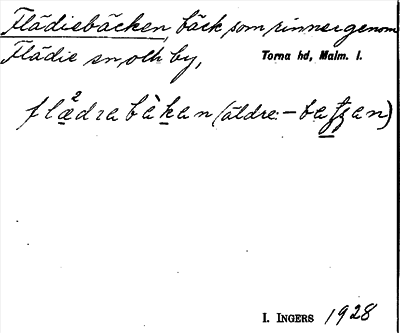 Flädiebäcken, bäck som rinner genom
Flädie sn, och by, Torna hd, Malm. l.
flädıabàkan (äldre: – baʈʐan)
I. INGERS 1928